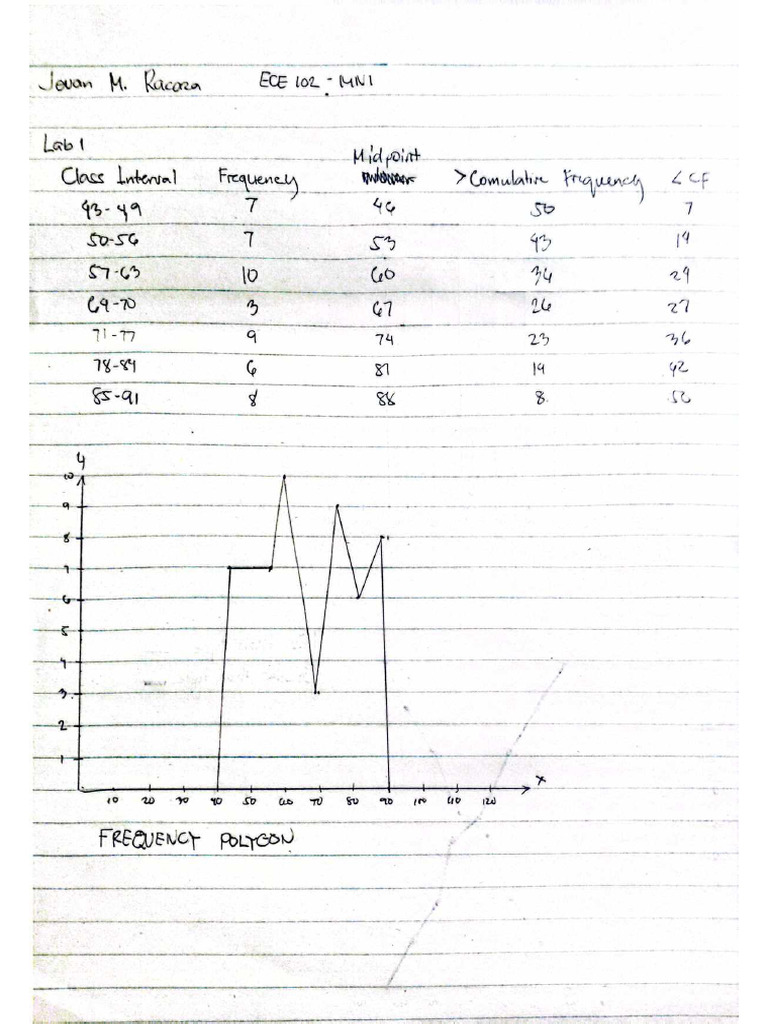 Jovan M. Racoza ECE 102 - MN1
Lab 1
Class Interval Frequency Midpoint >Comulative Frequency <CF
43-49 7 46 50 7
50-56 7 53 43 14
57-63 10 60 34 24
64-70 3 67 26 27
71-77 9 74 23 36
78-84 6 81 19 42
85-91 8 88 8 50
y
10
9
8
7
6
5
4
3
2
1
x
10 20 30 40 50 60 70 80 90 100 110 120
FREQUENCY POLYGON